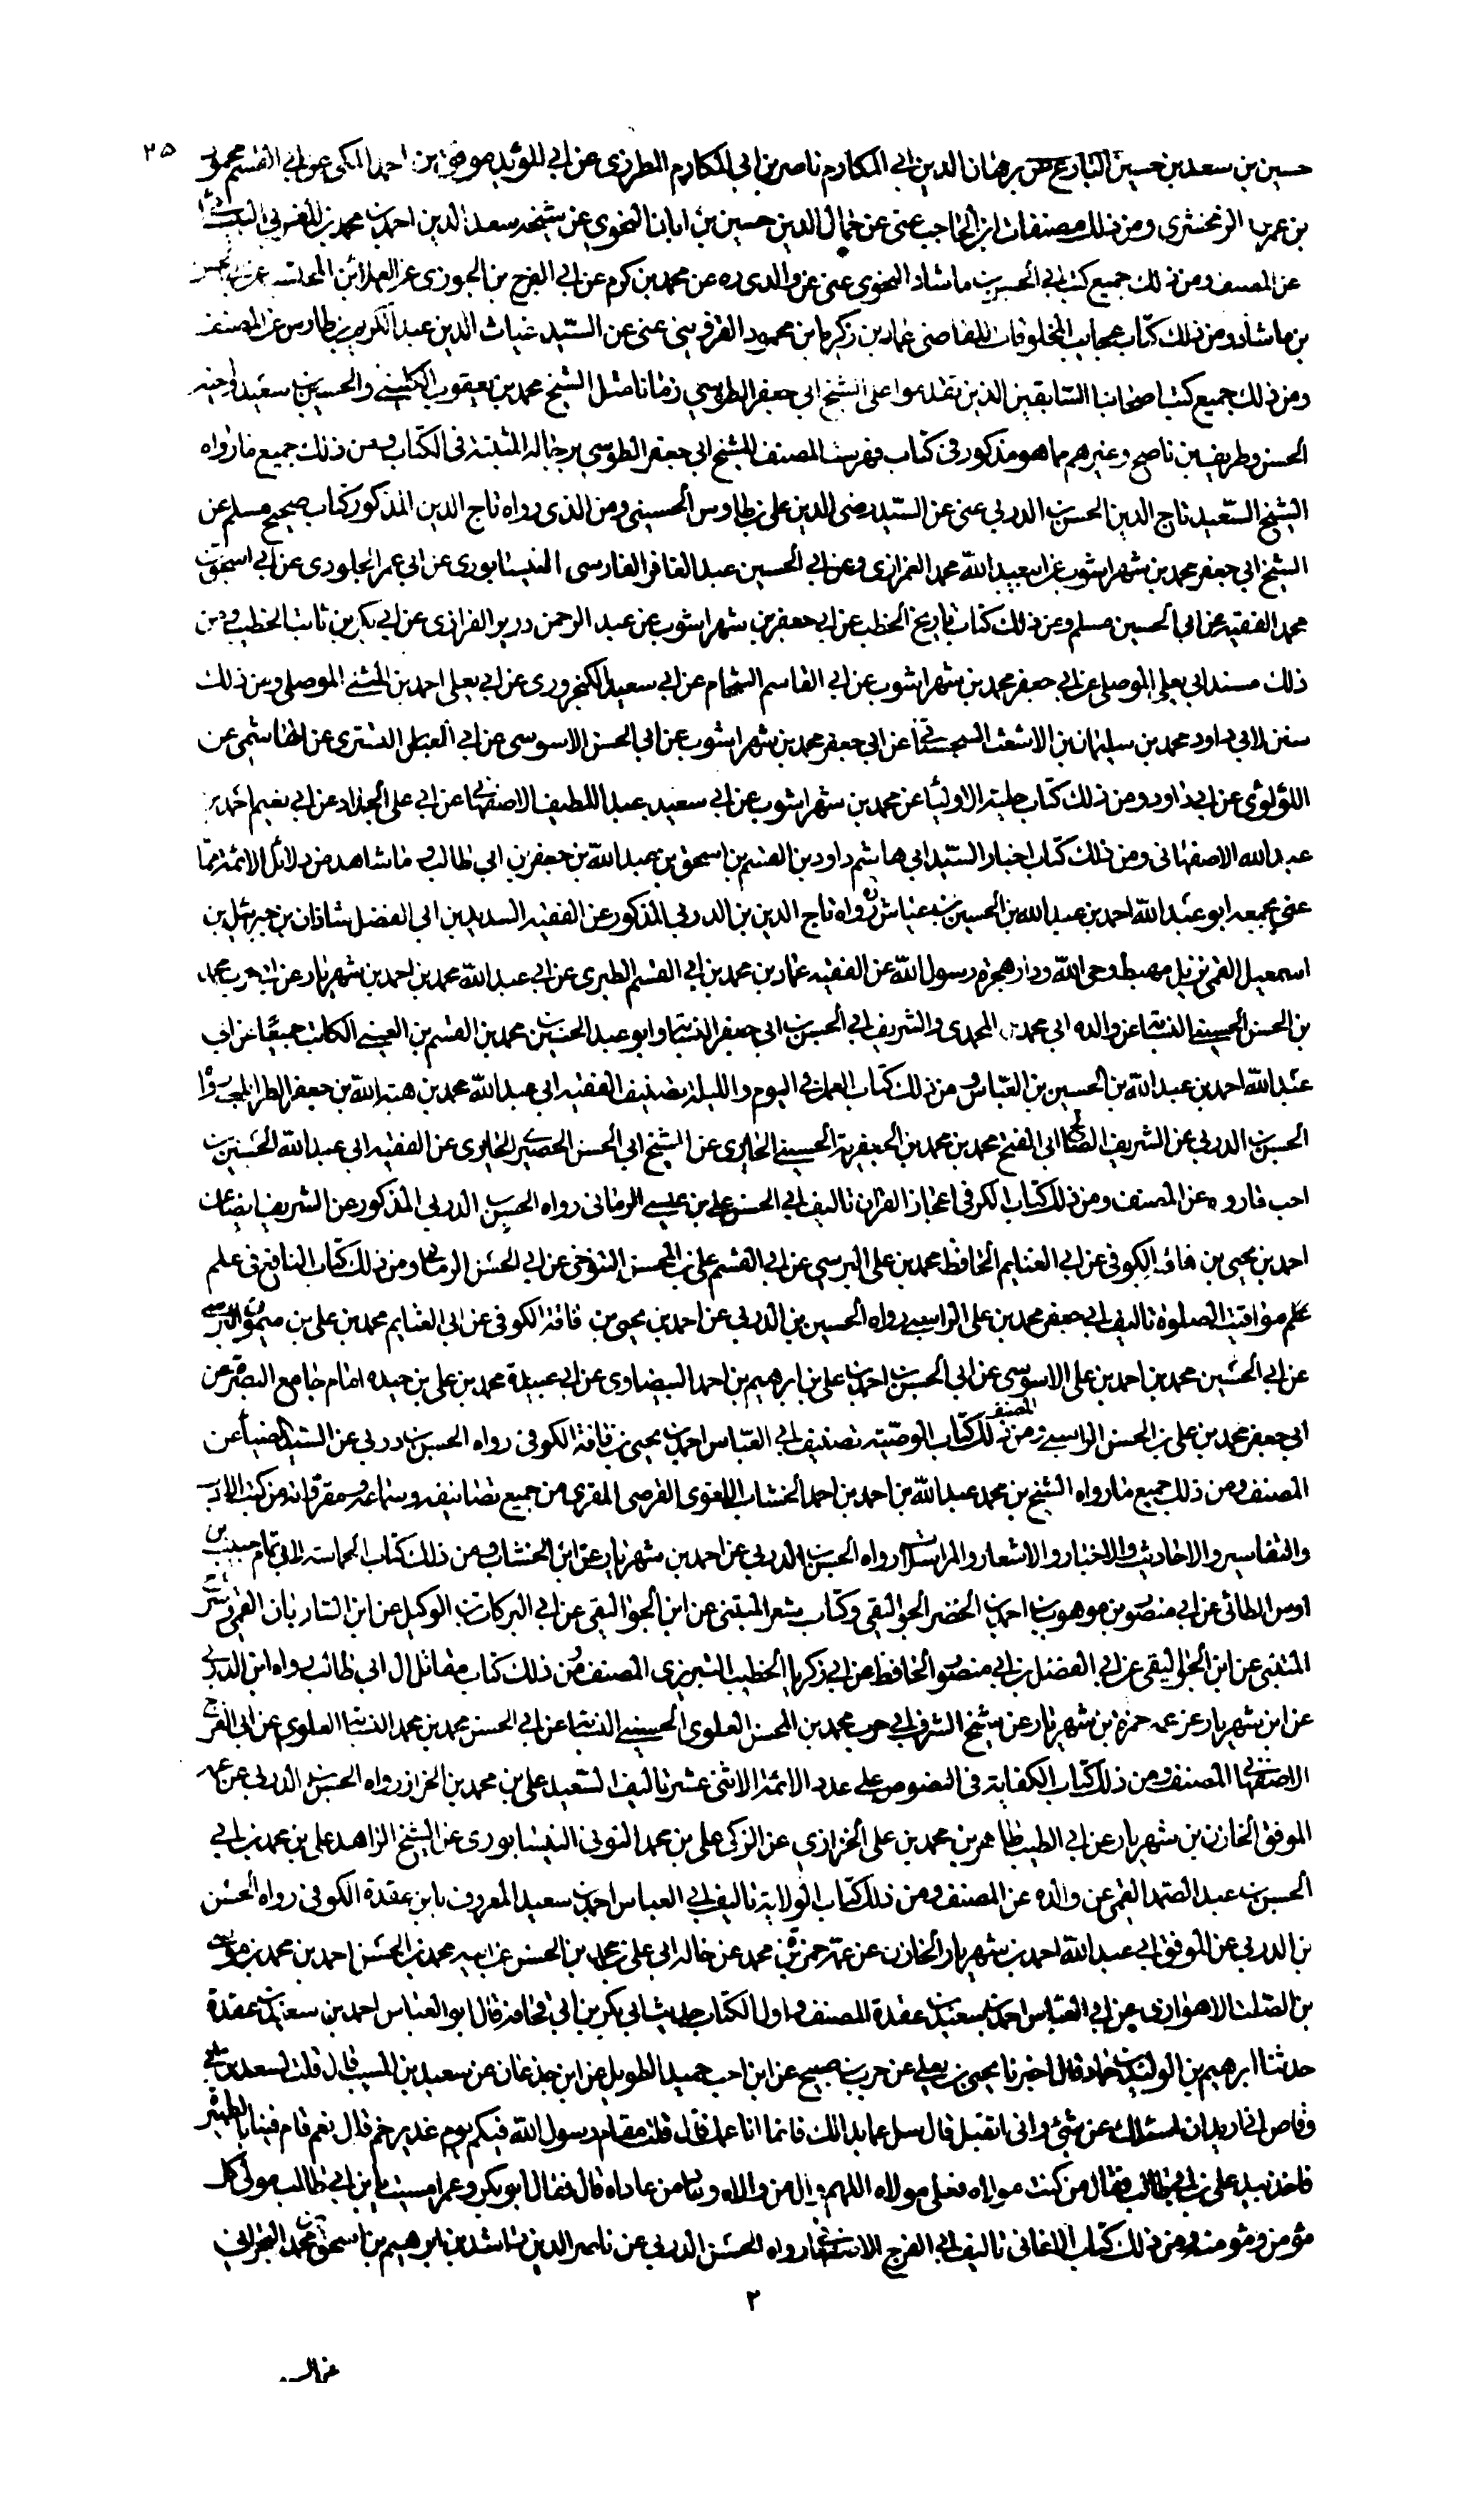 ٢٥
حسين بن سعد بن حسين البارع عن برهان الدين ابي المكارم ناصر بن ابي المكارم المطرزى عن ابي المؤيد موفق بن احمد المكى عن ابي القسم محمود
بن عمر الزمخشرى ومن ذلك مصنفات ابن الحاجب عنى عن جمال الدين حسين بن ابان النحوي عن شيخه سعد الدين احمد بن محمد المغربي
عن المصنف ومن ذلك جميع كتب ابي الحسن بن ماشاد النحوى عنى عن والدى ره عن محمد بن كرم عن ابي الفرج بن الجوزى عن
بن ماشاد ومن ذلك كتاب عجايب المخلوقات للقاضى عماد بن زكريا بن محمود القزوينى عنى عن السيد غياث الدين عبد الكريم بن طاوس عن المصنف
ومن ذلك جميع كتب اصحابنا السابقين الذين تقدموا على الشيخ ابي جعفر الطوسي زمانا مثل الشيخ محمد بن يعقوب الكليني والحسين بن سعيد واخيه
الحسن وظريف بن ناصح وغيرهم مما هو مذكور فى كتاب فهرست المصنف للشيخ ابي جعفر الطوسي برجاله المثبتة فى الكتاب ومن ذلك جميع ما رواه
الشيخ السعيد تاج الدين الحسن بن الدربي عنى عن السيد رضى الدين على بن طاوس الحسينى ومن الذى رواه تاج الدين المذكور كتاب صحيح مسلم عن
الشيخ ابي جعفر محمد بن شهراشوب عن ابي عبد الله محمد الفرازى وعن ابي الحسين عبد الغافر الفارسى النيسابورى عن ابي عمر الجلودى عن ابي اسحق بن
محمد الفقيه عن ابي الحسين مسلم وعن ذلك كتاب تاريخ الخطيب عن ابي جعفر بن شهراشوب عن عبد الرحمن زريو الفزازى عن ابي بكر بن ثابت الخطيب ومن
ذلك مسند ابي يعلى الموصلى عن ابي جعفر محمد بن شهراشوب عن ابي القاسم الشحام عن ابي سعيد الكنجرورى عن ابي يعلى احمد بن المثنى الموصلى ومن ذلك
سنن لابي داود محمد بن سليمان بن الاشعث السجستاني عن ابي جعفر محمد بن شهراشوب عن ابي الحسن الاسوسى عن ابي العباس التسترى عن الهاشمى عن
اللؤلؤى عن ابي داود ومن ذلك كتاب حلية الاولياء عن محمد بن شهراشوب عن ابي سعيد عبد اللطيف الاصفهاني عن ابي على الحداد عن ابي نعيم احمد بن
عبد الله الاصفهانى ومن ذلك كتاب اخبار السيد ابي هاشم داود بن القسم بن اسحق بن عبد الله بن جعفر بن ابي طالب وما شاهد من دلائل الائمة مما
عنى بجمعه ابو عبد الله احمد بن عبد الله بن الحسين بن عياش رواه تاج الدين بن الدربي المذكور عن الفقيه السديد بن ابي الفضل شاذان بن جبرئيل بن
اسمعيل القمى نزيل مهبط وحى الله ودار هجرة رسول الله عن الفقيه عماد بن محمد بن ابي القسم الطبرى عن ابي عبد الله محمد بن احمد بن شهريار عن ابي حرب محمد
بن الحسن الحسينى النسابة عن والده ابي محمد المحمدى والشريف ابي الحسين بن ابي جعفر النسابة وابو عبد الحسين محمد بن القسم بن العيبى الكاتب جميعا عن ابي
عبد الله احمد بن عبد الله بن الحسين بن العباس ومن ذلك كتاب العمل في اليوم والليلة تصنيف الفقيه ابي عبد الله محمد بن هبة الله بن جعفر الطرابلسي رواه
الحسن بن الدربي عن الشريف الصالح ابي الفتح محمد بن محمد بن الجعفرية الحسينى الحايرى عن الشيخ ابي الحسن الحصير الحايرى عن الفقيه ابي عبد الله الحسين بن
احب فاروه عن المصنف ومن ذلك كتاب الكر فى اعجاز القران تاليف ابي الحسن على بن عيسى الرمانى رواه الحسن بن الدربي المذكور عن الشريف ايضا عن
احمد بن يحيى بن فاقه الكوفى عن ابي الغنايم الحافظ محمد بن على البرسي عن ابي القسم على بن المحسن التنوخى عن ابي الحسن الرماني ومن ذلك كتاب النافع فى علم
علم مواقيت الصلوة تاليف ابي جعفر محمد بن على الراسبى رواه الحسين بن الدربي عن احمد بن يحيى بن فاقة الكوفى عن ابي الغنايم محمد بن على بن ميمون البرسى
عن ابي الحسين محمد بن احمد بن على الاسوسى عن ابي الحسن بن احمد بن على بن ابرهيم بن احمد البيضاوى عن ابي عبيدة محمد بن على بن حيده امام جامع البصرة عن
ابي جعفر محمد بن على بن الحسن الراسبى المصنف ومن ذلك كتاب الوصية تصنيف ابي العباس احمد بن يحيى بن فاقة الكوفى رواه الحسن بن دربي عن السيد ايضا عن
المصنف ومن ذلك جميع ما رواه الشيخ بن محمد عبد الله بن احمد بن احمد الخشاب اللغوى الفرضى المقرى من جميع تصانيفه وسماعه ومقرواته من كتب الادب
والتفاسير والاحاديث والاخبار والاشعار والمراسلات رواه الحسن بن الدربي عن احمد بن شهريار عن ابن الخشاب ومن ذلك كتاب الحماسة لابي تمام حبيب بن
اوس الطائى عن ابي منصور بن موهوب بن احمد بن الخضر الجواليقى وكتاب شعر المتنبى عن ابن الجواليقى عن ابي البركات بن الوكيل عن ابن الساربان القمى
المتنبى عن ابن الجواليقى عن ابي الفضل بن ابي منصور الحافظ عن ابي زكريا الخطيب التبريزى المصنف ومن ذلك كتاب مقاتل ال ابي طالب رواه ابن الدربي
عن ابن شهريار عن عمه حمزة بن شهريار عن شيخ الشرف ابي حرب محمد بن المحسن العلوى الحسينى النسابة عن ابي الحسن محمد بن محمد النسابة العلوى عن ابي الفرج
الاصفهاني المصنف ومن ذلك كتاب الكفاية فى النصوص على عدد الائمة الاثنى عشر تاليف السعيد على بن محمد بن الخراز رواه الحسن بن الدربى عن عمه
الموفق الخازن بن شهريار عن ابي الطيب طاهر بن محمد بن على الخرازي عن الزكى على بن محمد النونى النيسابورى عن الشيخ الزاهد على بن محمد بن ابي
الحسن بن عبد الصمد القمى عن والده عن المصنف ومن ذلك كتاب الولاية تاليف ابي العباس احمد بن سعيد المعروف بابن عقدة الكوفى رواه الحسن
بن الدربى عن الموفق ابي عبد الله احمد بن شهريار الخازن عن عمه حمزة بن محمد عن خاله ابي على بن محمد بن الحسن عن ابيه محمد بن الحسن احمد بن محمد بن موسى
بن الصلت الاهوازى عن ابي العباس احمد بن سعيد بن عقدة المصنف واول الكتاب حديث ابي بكر بن ابي قحافة قال ابو العباس احمد بن سعيد بن عقدة
حدثنا ابرهيم بن الوليد بن حماد قال اخبرنا يحيى بن يعلى عن حرب بن صبيح عن ابن اخت حميد الطويل عن ابن جذعان عن سعيد بن المسيب قال قلت لسعد بن ابي
وقاص انى اريد ان اسئلك عن شئ وانى اتقيك قال سل عما بدا لك فانما انا عمك قال قلت مقام رسول الله فيكم يوم غدير خم قال نعم قام فينا بالظهيرة
فاخذ بيد على بن ابي طالب فقال من كنت مولاه فعلى مولاه اللهم وال من والاه وعاد من عاداه قال فقال ابو بكر وعمر امسيت يا بن ابي طالب مولى كل
مؤمن ومؤمنة ومن ذلك كتاب الاغانى تاليف ابي الفرج الاصفهاني رواه الحسن الدربى عن ناصر الدين راشد بن ابرهيم بن اسحق بن محمد البحرانى
٢